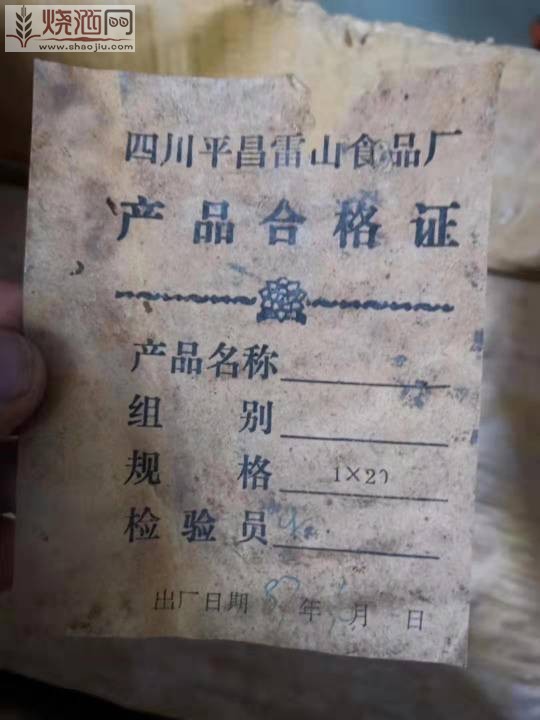 烧酒网
www.shaojiu.com
四川平昌雷山食品厂
产品合格证
产品名称
组别
规格 1×20
检验员
出厂日期 年 月 日